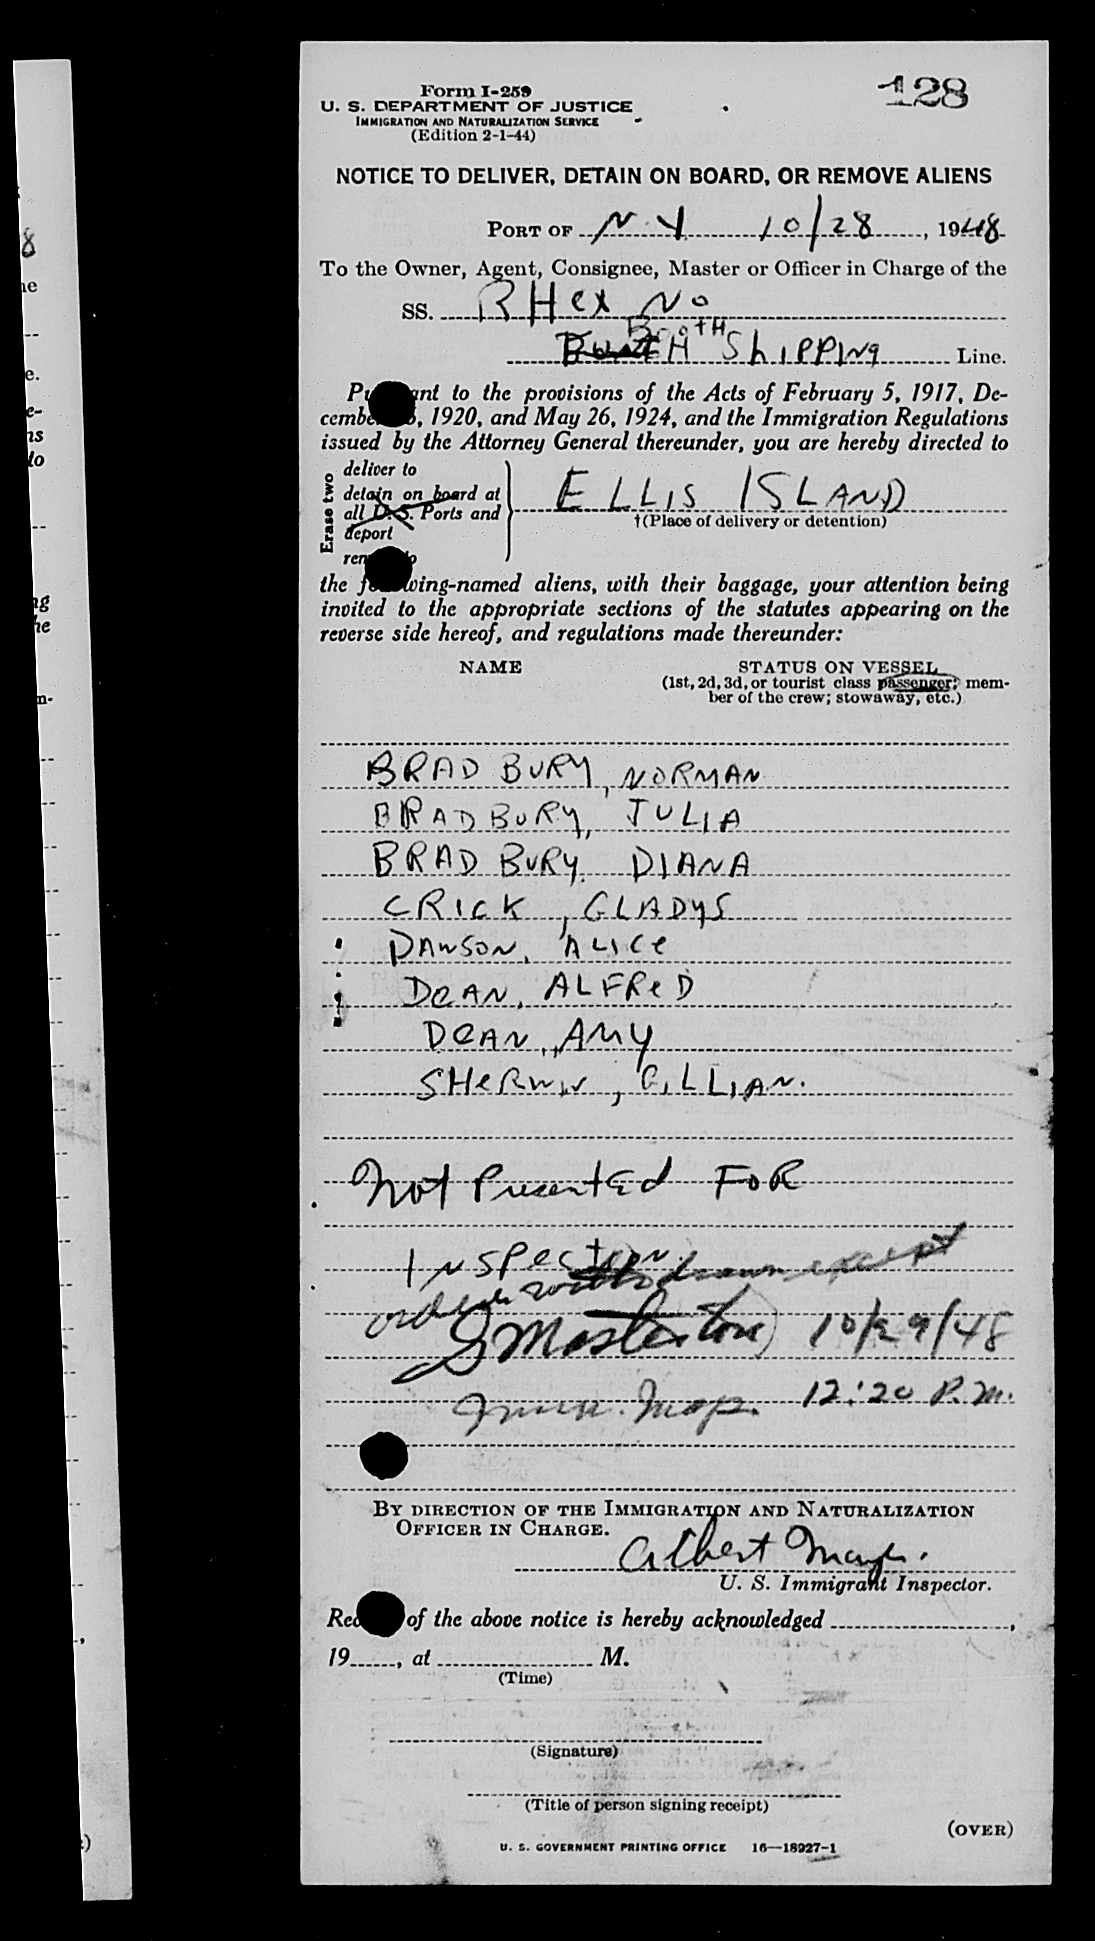 128
Form I-259
U. S. DEPARTMENT OF JUSTICE
IMMIGRATION AND NATURALIZATION SERVICE
(Edition 2-1-44)
NOTICE TO DELIVER, DETAIN ON BOARD, OR REMOVE ALIENS
PORT OF N.Y 10/28, 1948
To the Owner, Agent, Consignee, Master or Officer in Charge of the
SS. RHexNo
Booth
Shipping Line.
Pu ant to the provisions of the Acts of February 5, 1917, De-
cembe , 1920, and May 26, 1924, and the Immigration Regulations
issued by the Attorney General thereunder, you are hereby directed to
Erase two
deliver to
detain on board at
all U. S. Ports and
deport
rem to
ELLIS ISLAND
†(Place of delivery or detention)
the fo wing-named aliens, with their baggage, your attention being
invited to the appropriate sections of the statutes appearing on the
reverse side hereof, and regulations made thereunder:
NAME STATUS ON VESSEL
(1st, 2d, 3d, or tourist class passenger; mem-
ber of the crew; stowaway, etc.)
BRADBURY, NORMAN
BRADBURY, JULIA
BRADBURY, DIANA
CRICK, GLADYS
DAWSON, ALICe
DeAN, ALFReD
DeAN, AMY
SHeRWIN, GILLIAN.
Not Presented FOR
INSPection.
order withdrawn except
S Masterton 10/29/48
Imm. Insp. 12:20 P.M.
BY DIRECTION OF THE IMMIGRATION AND NATURALIZATION
OFFICER IN CHARGE.
Albert
U. S. Immigrant Inspector.
Rec of the above notice is hereby acknowledged ,
19 , at M.
(Time)
(Signature)
(Title of person signing receipt)
(OVER)
U. S. GOVERNMENT PRINTING OFFICE 16—18927-1